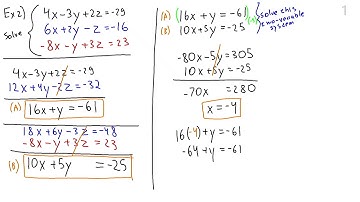 Ex 2)
Solve
4x-3y+2z=-29
6x+2y-z=-16
-8x-y+3z=23
4x-3y+2z=-29
12x+4y-2z=-32
(A) 16x+y=-61
18x+6y-3z=-48
-8x-y+3z=23
(B) 10x+5y =-25
(A) (16x+y=-61)
(B) 10x+5y=-25
Solve this two-variable system
-80x-5y=305
10x+5y=-25
-70x =280
x=-4
16(-4)+y=-61
-64+y=-61
1